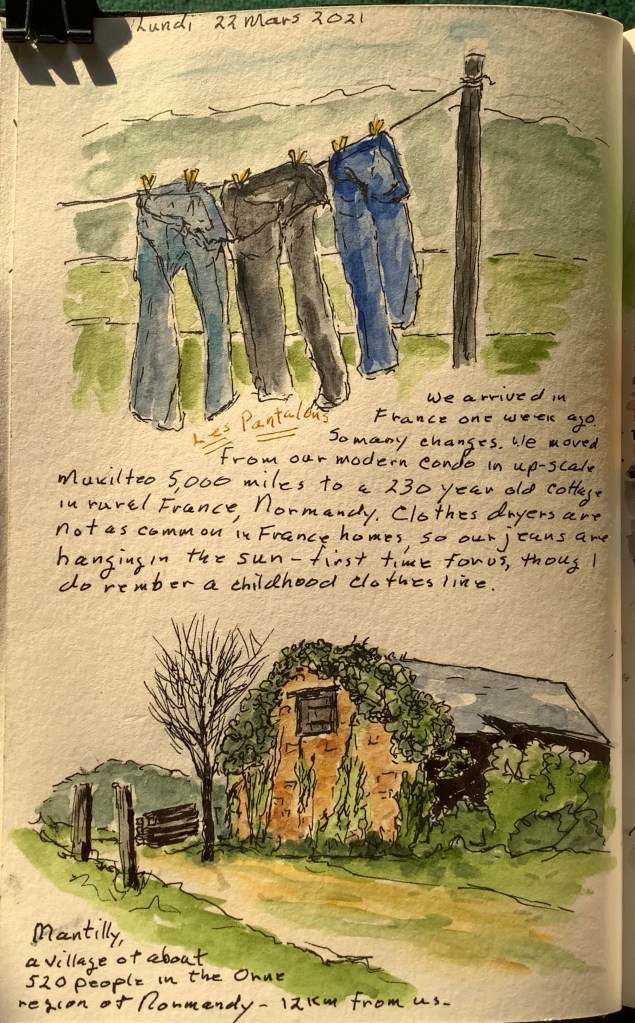 Lundi 22 Mars 2021
Les Pantalons
We arrived in
France one week ago.
So many changes. We moved
from our modern condo in up-scale
Mukilteo 5,000 miles to a 230 year old cottage
in rural France, Normandy. Clothes dryers are
not as common in France homes, so our jeans are
hanging in the sun - first time for us, thoug I
do rember a childhood clothes line.
Mantilly,
a village of about
520 people in the Orne
region of Normandy - 12km from us-